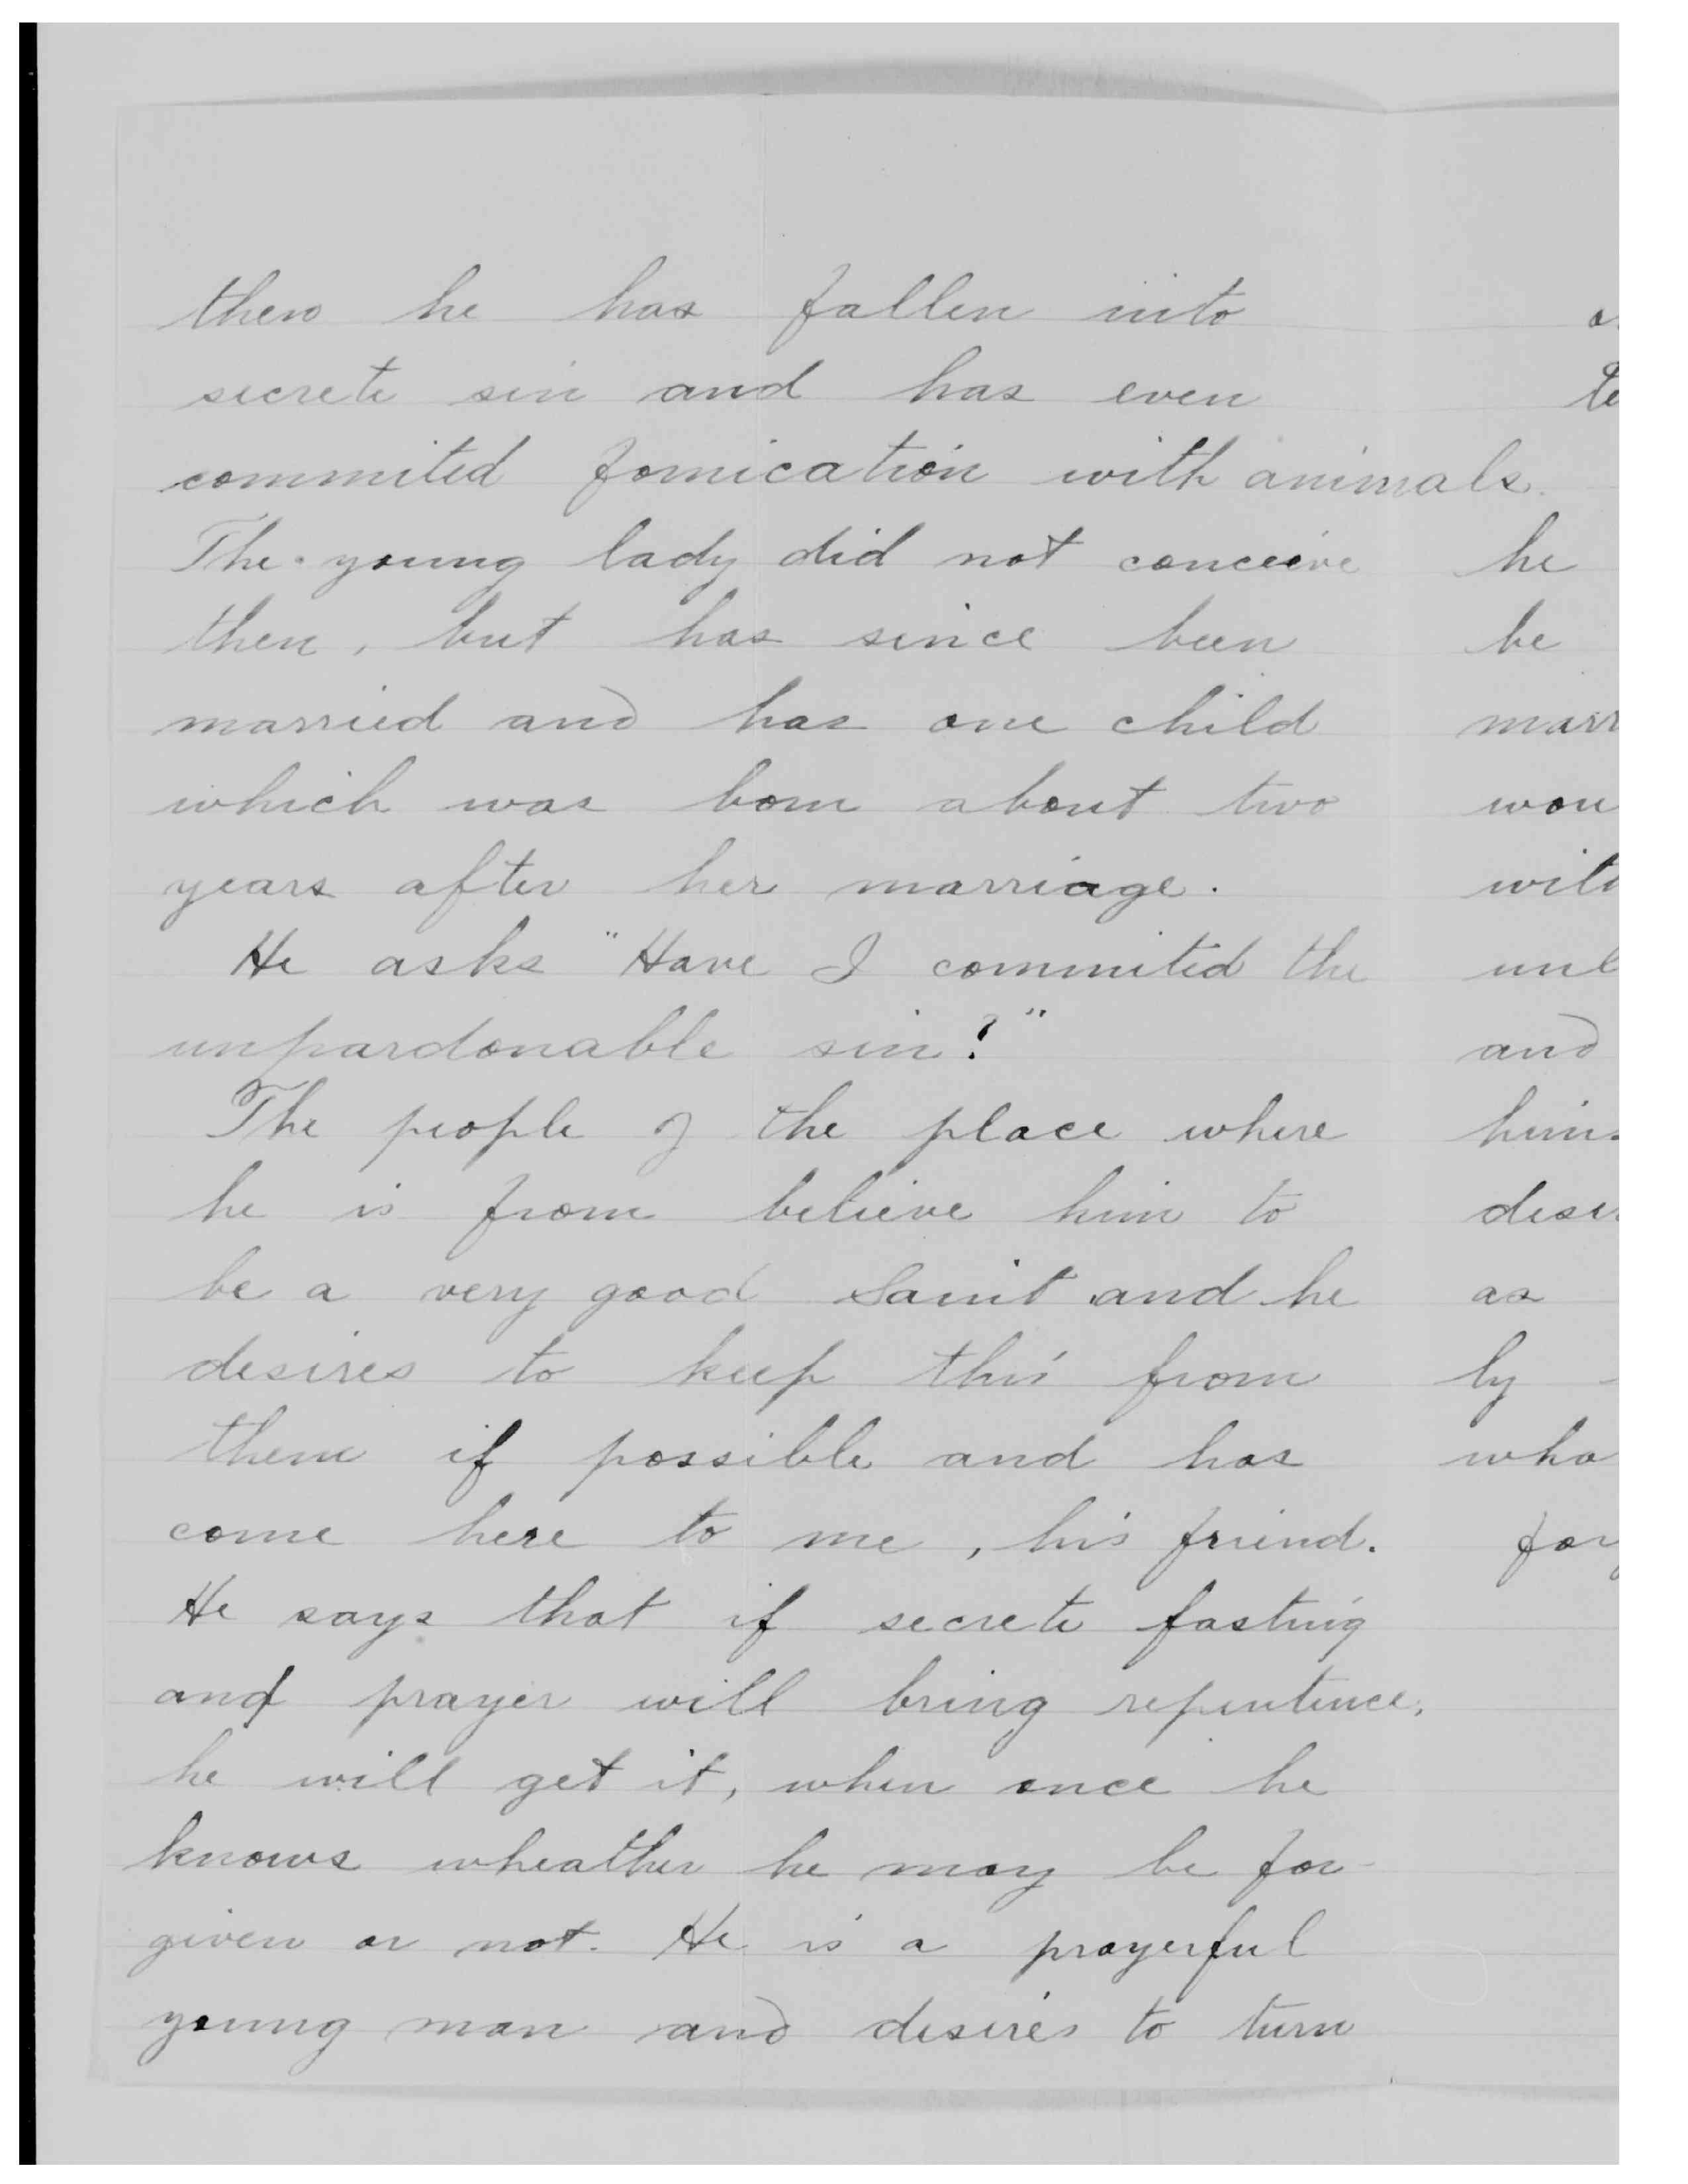 then he has fallen into
secrete sin and has even
commited fornication with animals.
The young lady did not conceive
then, but has since been
married and has one child
which was born about two
years after her marriage.
He asks "Have I commited the
unpardonable sin?"
The people of the place where
he is from believe him to
be a very good Saint and he
desires to keep this from
them if possible and has
come here to me, his friend.
He says that if secrete fasting
and prayer will bring repentence,
he will get it, when once he
knows wheather he may be for-
given or not. He is a prayerful
young man and desires to turn
he
be
and
as
ly